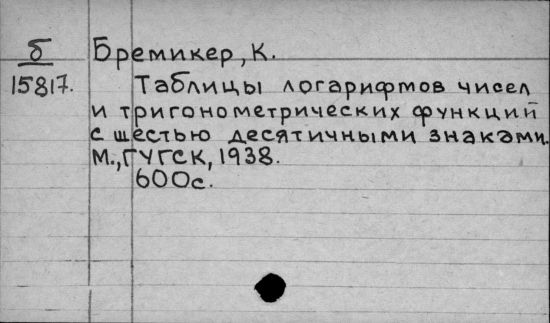 б Бремикер, К.
15817. Таблицы логарифмов чисел
и тригонометрических функций
с шестью десятичными знаками.
М., ГУГСК, 1938.
600с.